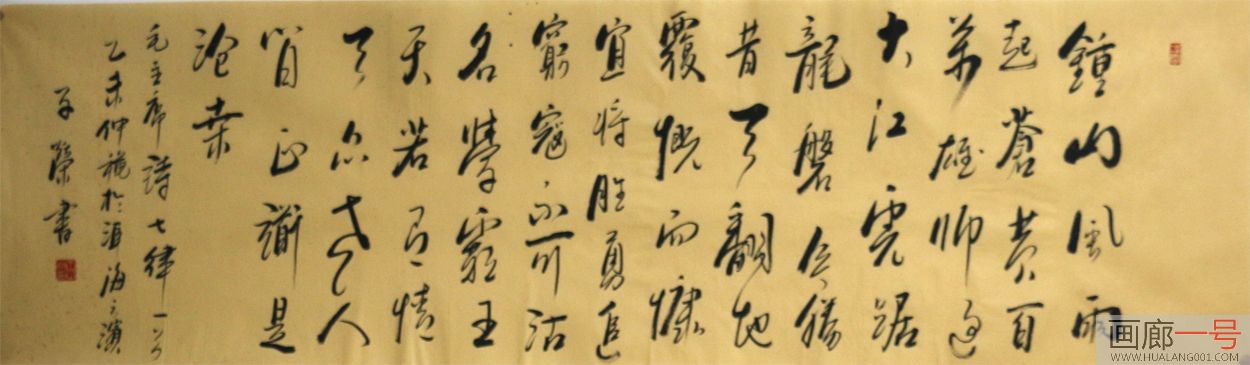 鍾山風雨
起蒼黄百
萬雄师過
大江虎踞
龍磐今勝
昔天翻地
覆慨而慷
宜将胜勇追
窮寇不可沽
名學霸王
天若有情
天亦老人
间正道是
滄桑
毛主席詩七律一首
乙未仲穐於海之濱
子榮書
画廊一号
WWW.HUALANG001.COM